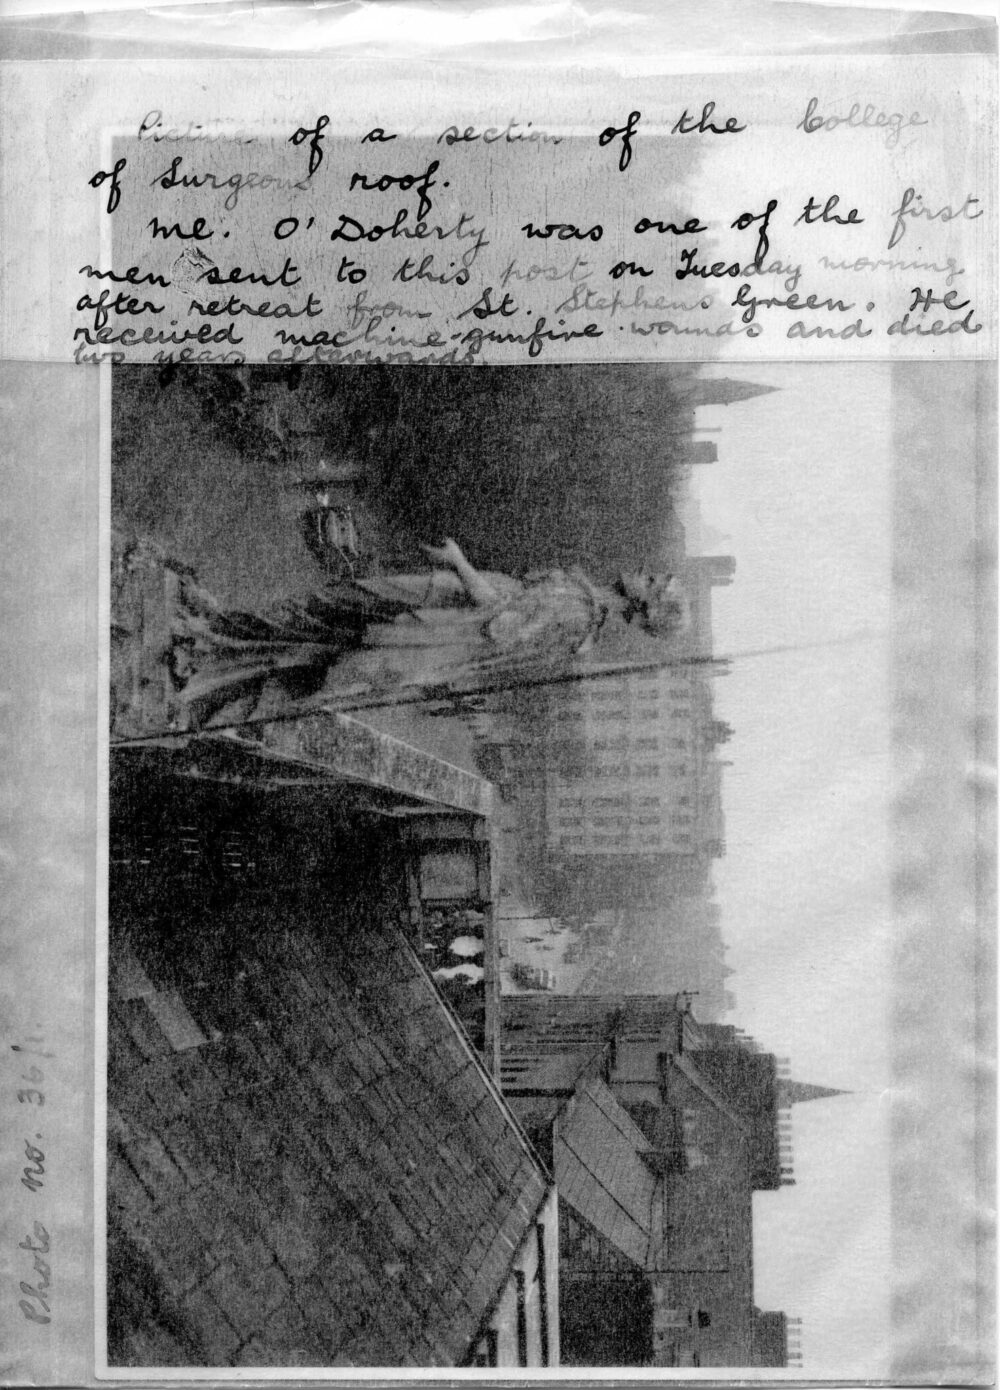 Picture of a section of the College
of Surgeons roof.
me. O'Doherty was one of the first
men sent to this post on Tuesday morning
after retreat from St. Stephens Green. He
received machine-gunfire wounds and died
two years afterwards.
Photo no. 36/1.